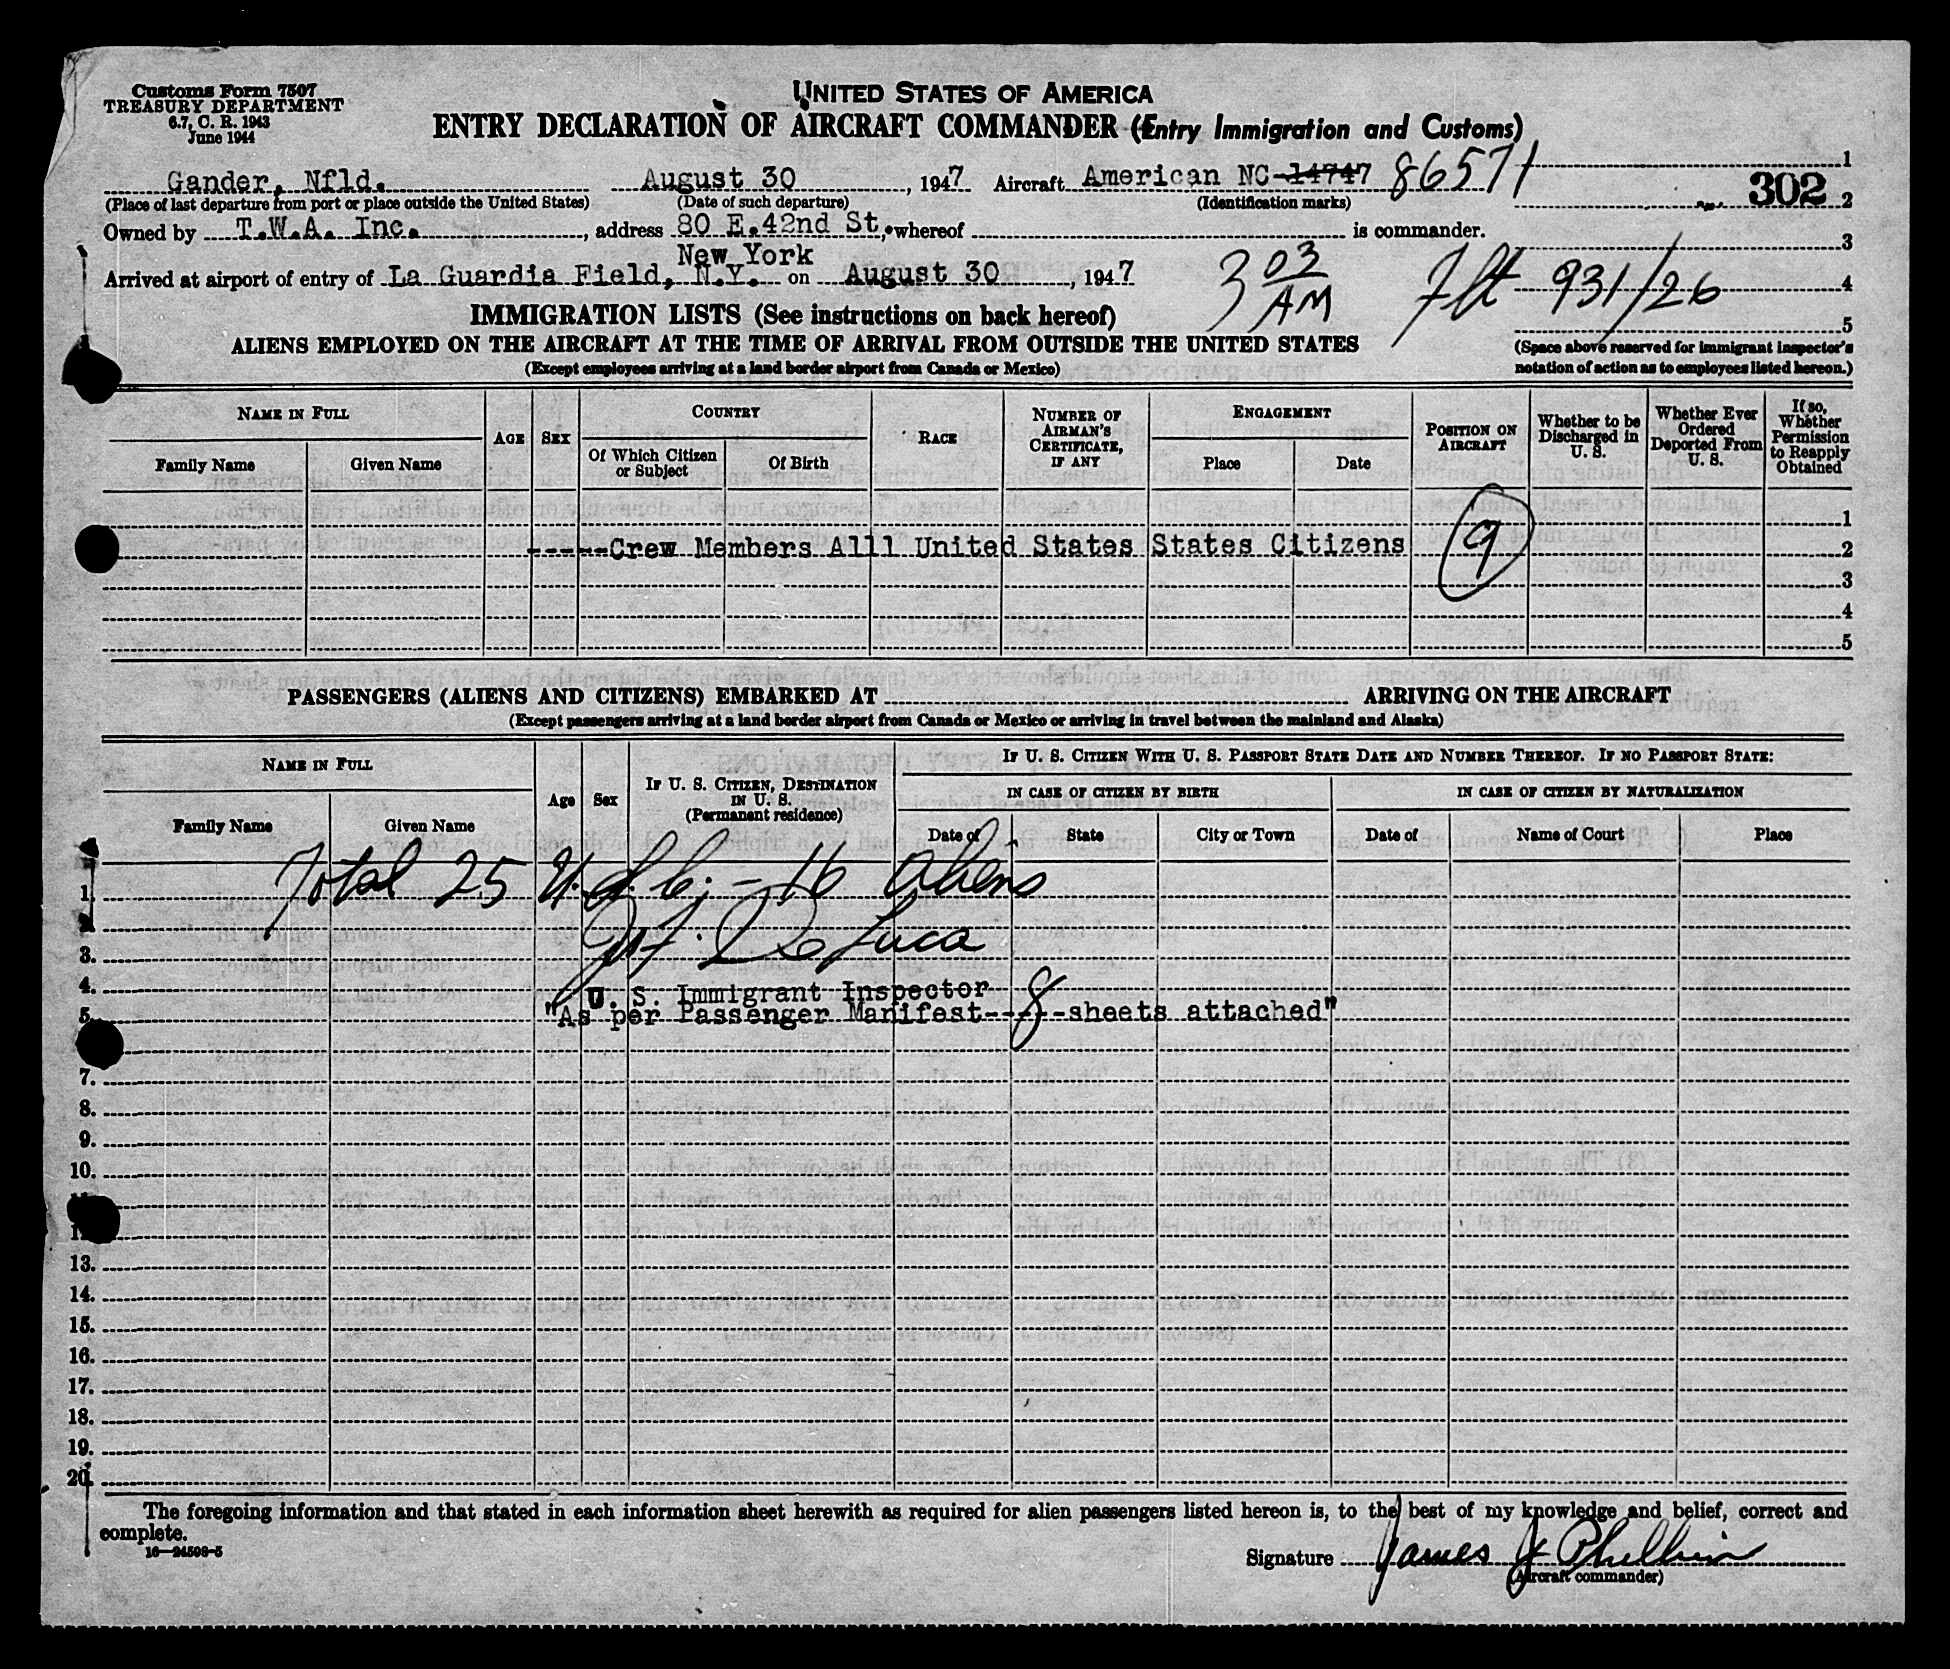 Customs Form 7507
TREASURY DEPARTMENT
6.7, C. R. 1943
June 1944
UNITED STATES OF AMERICA
ENTRY DECLARATION OF AIRCRAFT COMMANDER (Entry Immigration and Customs)
Gander, Nfld. August 30, 1947 Aircraft American NC 14747 86571 1
(Place of last departure from port or place outside the United States) (Date of such departure) (Identification marks) 302 2
Owned by T.W.A. Inc., address 80 E.42nd St., whereof is commander.
New York 3
Arrived at airport of entry of La Guardia Field, N.Y. on August 30, 1947 3 03 AM Flt 931/26 4
IMMIGRATION LISTS (See instructions on back hereof) 5
ALIENS EMPLOYED ON THE AIRCRAFT AT THE TIME OF ARRIVAL FROM OUTSIDE THE UNITED STATES
(Space above reserved for immigrant inspector's
notation of action as to employees listed hereon.)
(Except employees arriving at a land border airport from Canada or Mexico)
NAME IN FULL
Family Name Given Name
AGE SEX
COUNTRY
Of Which Citizen or Subject Of Birth
RACE
NUMBER OF AIRMAN'S CERTIFICATE, IF ANY
ENGAGEMENT
Place Date
POSITION ON AIRCRAFT
Whether to be Discharged in U. S.
Whether Ever Ordered Deported From U. S.
If so, Whether Permission to Reapply Obtained
1
-----Crew Members Alll United States States Citizens 9 2
3
4
5
PASSENGERS (ALIENS AND CITIZENS) EMBARKED AT ARRIVING ON THE AIRCRAFT
(Except passengers arriving at a land border airport from Canada or Mexico or arriving in travel between the mainland and Alaska)
NAME IN FULL
Family Name Given Name
Age Sex
IF U. S. CITIZEN, DESTINATION IN U. S. (Permanent residence)
IF U. S. CITIZEN WITH U. S. PASSPORT STATE DATE AND NUMBER THEREOF. IF NO PASSPORT STATE:
IN CASE OF CITIZEN BY BIRTH IN CASE OF CITIZEN BY NATURALIZATION
Date of State City or Town Date of Name of Court Place
1. Total 25 U.S.C. - 16 Aliens
2.
3. De Luca
4. U. S. Immigrant Inspector
5. "As per Passenger Manifest---8---sheets attached"
7.
8.
9.
10.
13.
14.
15.
16.
17.
18.
19.
20.
The foregoing information and that stated in each information sheet herewith as required for alien passengers listed hereon is, to the best of my knowledge and belief, correct and
complete.
16—24598-5
Signature James J Philbin
(Aircraft commander)